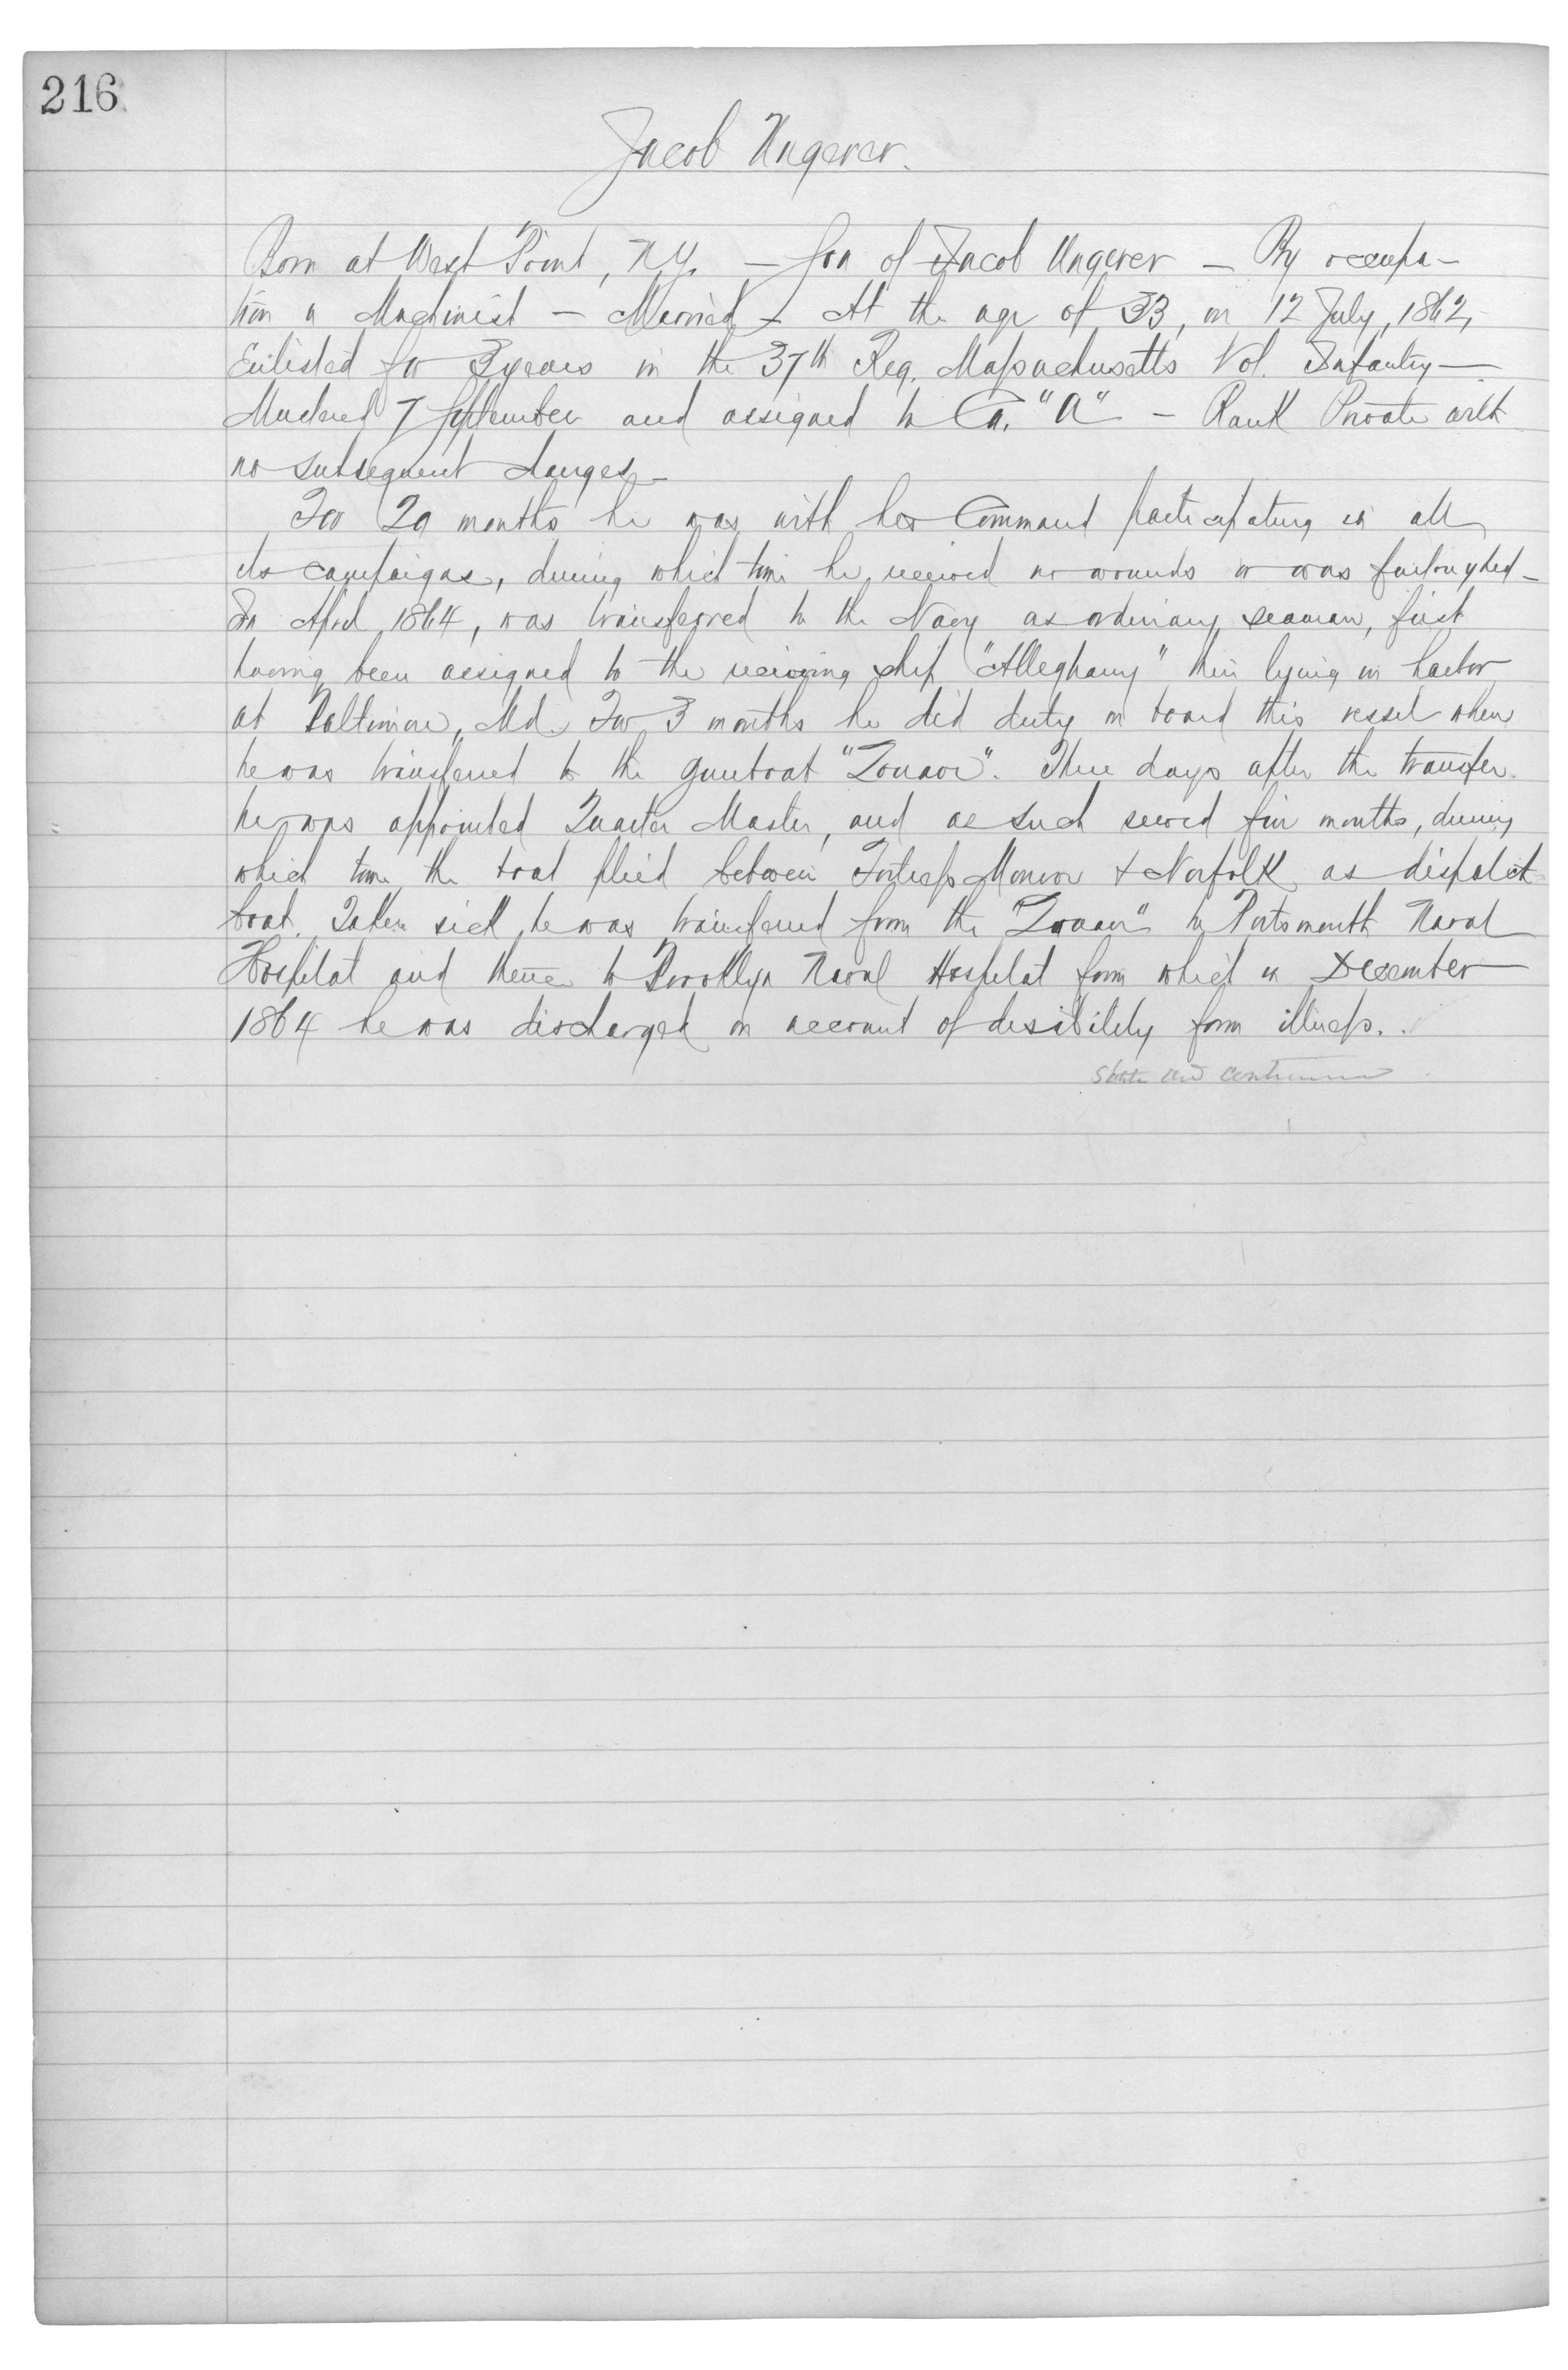 216
Jacob Ungerer.
Born at West Point, N.Y. — Son of Jacob Ungerer — By occupa-
tion a Machinist — Married — At the age of 33, on 12 July, 1862,
Enlisted for 3 years in the 37th Reg. Massachusetts Vol. Infantry —
Mustered 7 September and assigned to Co. "A" — Rank Private with
no subsequent changes —
For 20 months he was with his Command participating in all
its campaigns, during which time he received no wounds or was furloughed —
In April 1864, was transferred to the Navy as ordinary seaman, first
having been assigned to the receiving ship "Alleghany" then lying in harbor
at Baltimore, Md. For 3 months he did duty on board this vessel when
he was transferred to the gunboat "Zouave". Three days after the transfer
he was appointed Quarter Master, and as such served five months, during
which time the boat plied between Fortress Monroe & Norfolk as dispatch
boat. Taken sick he was transferred from the "Zouave" to Portsmouth Naval
Hospital and thence to Brooklyn Naval Hospital from which in December
1864 he was discharged on account of disibility from illness.
State and